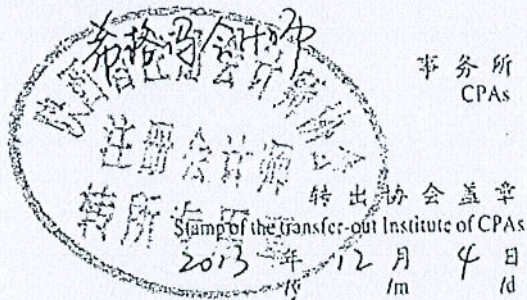 希格玛会计师
事务所
CPAs
陕西省注册会计师协会
注册会计师
转所专用章
转出协会盖章
Stamp of the transfer-out Institute of CPAs
2013年 12月 4日
/y /m /d